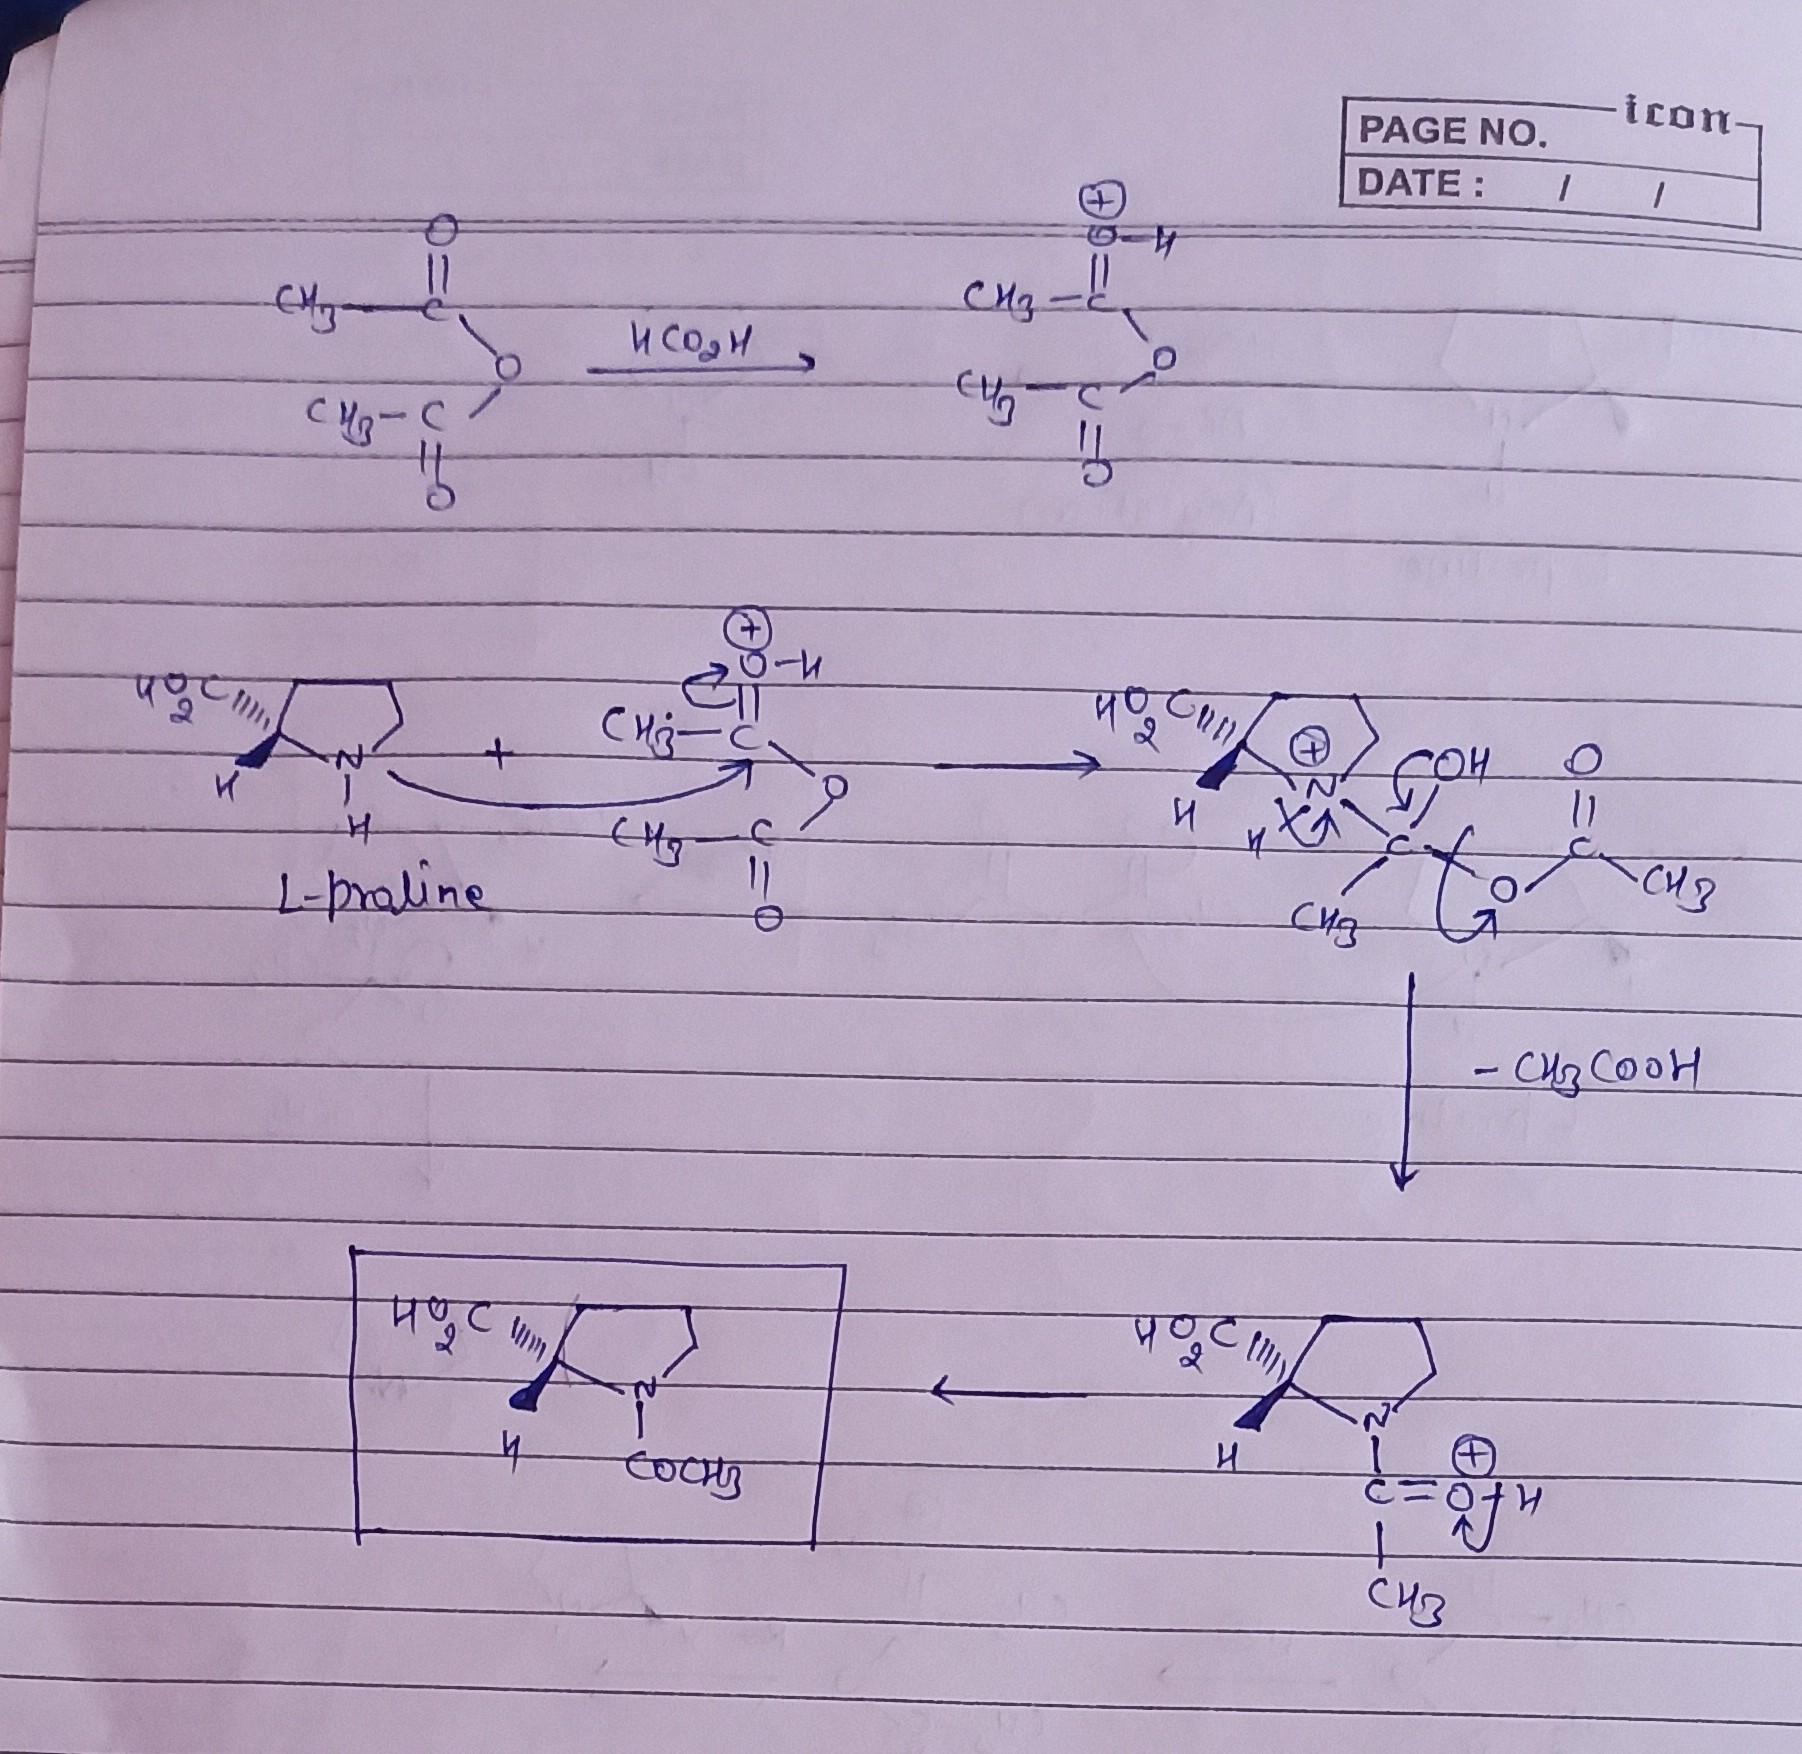 icon
PAGE NO.
DATE : / /
O
CH3 — C
O
CH3 – C
O
HCO2H
⊕
O–H
CH3 – C
O
CH3 — C
O
HO2C
H
N
H
L-proline
+
⊕
O–H
CH3 – C
O
CH3 — C
O
HO2C
⊕
N
H
H
OH
O
C
C
O
CH3
CH3
– CH3COOH
HO2C
N
H
COCH3
HO2C
N
H
⊕
C=O–H
CH3